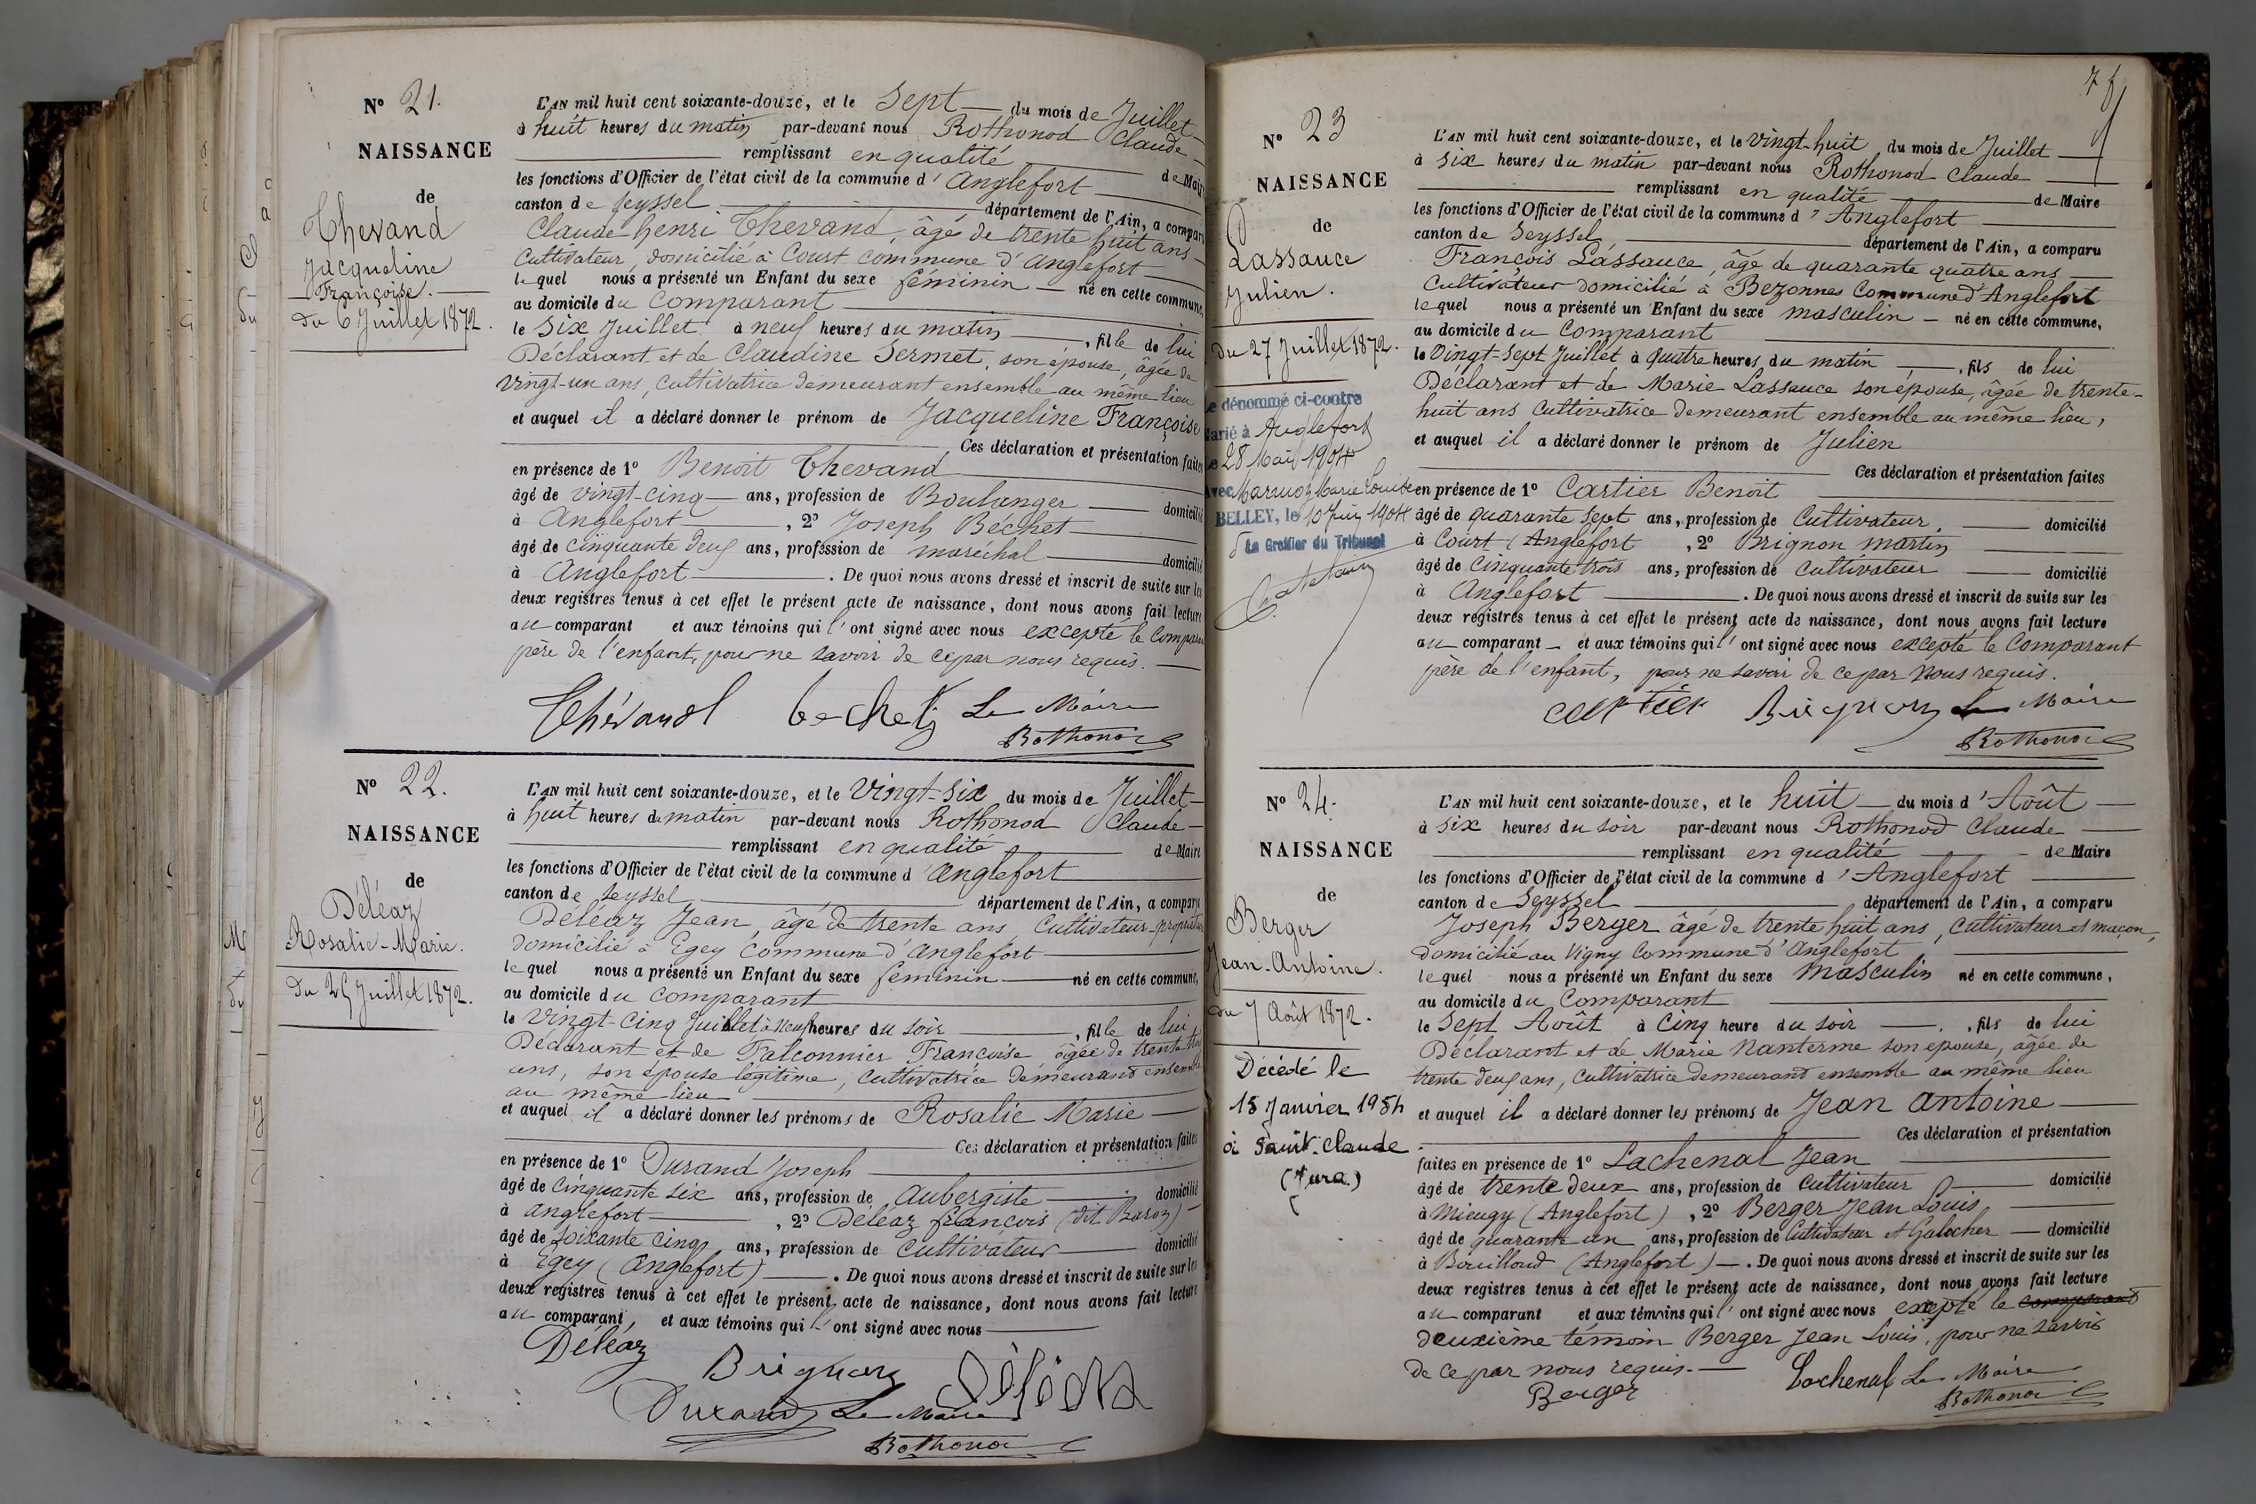 N° 21.
NAISSANCE
de
Thevand
Jacqueline
Françoise.
du 6 Juillet 1872.
L'AN mil huit cent soixante-douze, et le Sept du mois de Juillet
à huit heures du matin par-devant nous Rothonod Claude
remplissant en qualité de Maire
les fonctions d'Officier de l'état civil de la commune d'Anglefort
canton de Seyssel département de l'Ain, a comparu
Claude henri Thevand, âgé de trente huit ans
Cultivateur, domicilié à Court commune d'Anglefort
lequel nous a présenté un Enfant du sexe féminin né en cette commune,
au domicile du Comparant
le Six Juillet à neuf heures du matin, fille de lui
Déclarant et de Claudine Sermet, son épouse, âgée de
vingt-un ans, Cultivatrice demeurant ensemble au même lieu
et auquel il a déclaré donner le prénom de Jacqueline Françoise
Ces déclaration et présentation faites
en présence de 1° Benoît Thevand
âgé de vingt-cinq ans, profession de Boulanger domicilié
à Anglefort, 2° Joseph Béchet
âgé de cinquante deux ans, profession de maréchal domicilié
à Anglefort. De quoi nous avons dressé et inscrit de suite sur les
deux registres tenus à cet effet le présent acte de naissance, dont nous avons fait lecture
au comparant et aux témoins qui l'ont signé avec nous excepté le Comparant
père de l'enfant, pour ne savoir de ce par nous requis.
Thévand bechet Le Maire
Rothonod
N° 22.
NAISSANCE
de
Déléaz
Rosalie-Marie.
du 25 Juillet 1872.
L'AN mil huit cent soixante-douze, et le Vingt-Six du mois de Juillet
à huit heures du matin par-devant nous Rothonod Claude
remplissant en qualité de Maire
les fonctions d'Officier de l'état civil de la commune d'Anglefort
canton de Seyssel département de l'Ain, a comparu
Déléaz Jean, âgé de trente ans, Cultivateur-propriétaire
domicilié à Egey Commune d'Anglefort
lequel nous a présenté un Enfant du sexe féminin né en cette commune,
au domicile du Comparant
le Vingt-Cinq Juillet à neuf heures du soir, fille de lui
Déclarant et de Falconnier Françoise âgée de trente
ans, son épouse légitime, Cultivatrice demeurant ensemble
au même lieu
et auquel il a déclaré donner les prénoms de Rosalie Marie
Ces déclaration et présentation faites
en présence de 1° Durand Joseph
âgé de Cinquante six ans, profession de Aubergiste domicilié
à anglefort, 2° Déléaz françois (dit Baron)
âgé de soixante cinq ans, profession de Cultivateur domicilié
à Egey (Anglefort). De quoi nous avons dressé et inscrit de suite sur les
deux registres tenus à cet effet le présent acte de naissance, dont nous avons fait lecture
au comparant, et aux témoins qui l'ont signé avec nous
Déléaz
Brignon Déléaz
Durand Le Maire
Rothonod
N° 23
NAISSANCE
de
Lassauce
Julien.
du 27 Juillet 1872.
Le dénommé ci-contre
Marié à Anglefort
Le 28 Mai 1904
Avec Marie Louise
BELLEY, le 10 Juin 1904
Le Greffier du Tribunal
L'AN mil huit cent soixante-douze, et le Vingt-huit du mois de Juillet
à six heures du matin par-devant nous Rothonod Claude
remplissant en qualité de Maire
les fonctions d'Officier de l'état civil de la commune d'Anglefort
canton de Seyssel département de l'Ain, a comparu
François Lassauce, âgé de quarante quatre ans
Cultivateur domicilié à Bezonnes Commune d'Anglefort
lequel nous a présenté un Enfant du sexe masculin né en cette commune,
au domicile du Comparant
le Vingt-Sept Juillet à quatre heures du matin, fils de lui
Déclarant et de Marie Lassauce son épouse, âgée de trente-
huit ans Cultivatrice demeurant ensemble au même lieu,
et auquel il a déclaré donner le prénom de Julien
Ces déclaration et présentation faites
en présence de 1° Cartier Benoît
âgé de quarante sept ans, profession de Cultivateur. domicilié
à Court (Anglefort, 2° Brignon Martin
âgé de Cinquante trois ans, profession de Cultivateur domicilié
à Anglefort. De quoi nous avons dressé et inscrit de suite sur les
deux registres tenus à cet effet le présent acte de naissance, dont nous avons fait lecture
au comparant et aux témoins qui l'ont signé avec nous excepté le Comparant
père de l'enfant, pour ne savoir de ce par nous requis.
cartier Brignon Le Maire
Rothonod
N° 24.
NAISSANCE
de
Berger
Jean-Antoine.
du 7 Août 1872.
Décédé le
18 Janvier 1954
à Saint-Claude
(Jura)
L'AN mil huit cent soixante-douze, et le huit du mois d'Août
à six heures du soir par-devant nous Rothonod Claude
remplissant en qualité de Maire
les fonctions d'Officier de l'état civil de la commune d'Anglefort
canton de Seyssel département de l'Ain, a comparu
Joseph Berger âgé de trente huit ans, Cultivateur et maçon,
domicilié au Vigny Commune d'Anglefort
lequel nous a présenté un Enfant du sexe masculin né en cette commune,
au domicile du Comparant
le Sept Août à Cinq heure du soir, fils de lui
Déclarant et de Marie Nanterme son épouse, âgée de
trente deux ans, Cultivatrice demeurant ensemble au même lieu
et auquel il a déclaré donner les prénoms de Jean Antoine
Ces déclaration et présentation
faites en présence de 1° Lachenal Jean
âgé de trente deux ans, profession de Cultivateur domicilié
à Mieugy (Anglefort), 2° Berger Jean Louis
âgé de quarante un ans, profession de Cultivateur et Galocher domicilié
à Bouilloud (Anglefort). De quoi nous avons dressé et inscrit de suite sur les
deux registres tenus à cet effet le présent acte de naissance, dont nous avons fait lecture
au comparant et aux témoins qui l'ont signé avec nous excepté le comparant
deuxième témoin Berger Jean Louis, pour ne savoir
de ce par nous requis.
Berger Lachenal Le Maire
Rothonod